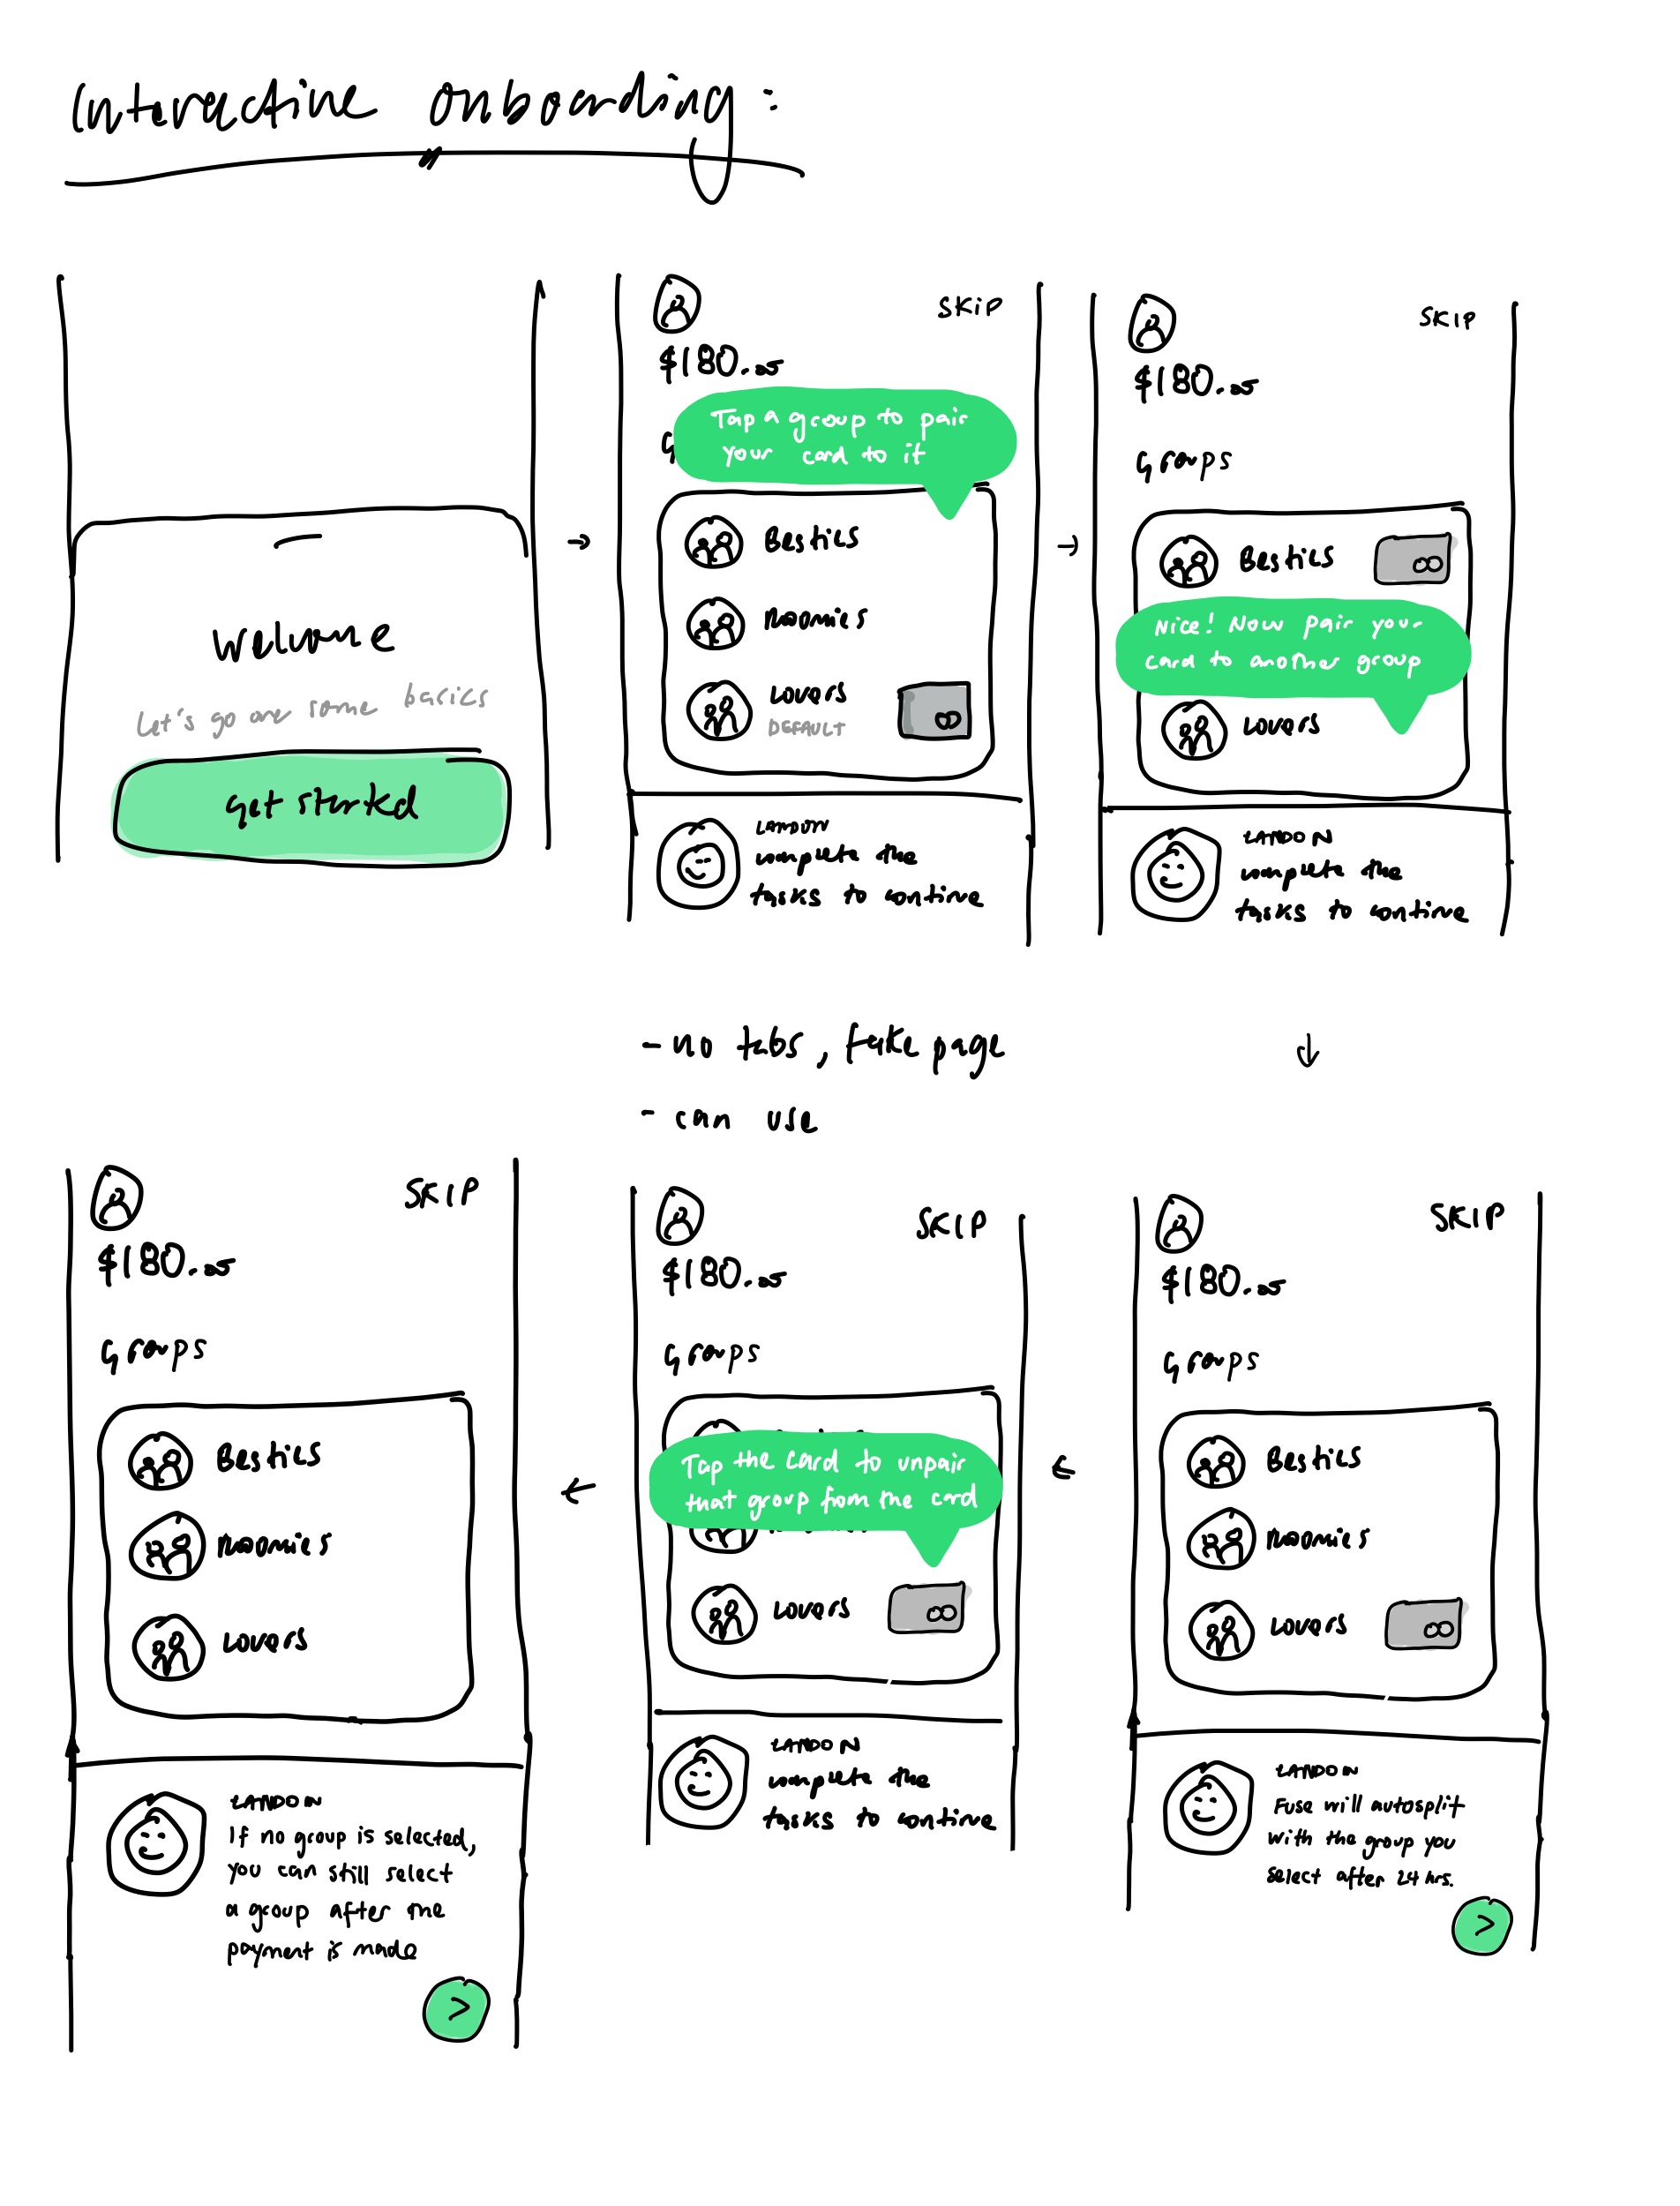 Interactive onboarding:
Welcome
Let's go over some basics
Get started
SKIP
$180.25
G
Tap a group to pair
your card to it
Besties
Roomies
Lovers
DEFAULT
LANDON
complete the
tasks to continue
SKIP
$180.25
Groups
Besties
Nice! Now pair your
card to another group
Lovers
LANDON
complete the
tasks to continue
- no tabs, fake page
- can use
SKIP
$180.25
Groups
Besties
Roomies
Lovers
LANDON
Fuse will autosplit
with the group you
select after 24 hrs.
SKIP
$180.25
Groups
Tap the card to unpair
that group from the card
Lovers
LANDON
complete the
tasks to continue
SKIP
$180.25
Groups
Besties
Roomies
Lovers
LANDON
If no group is selected,
you can still select
a group after the
payment is made